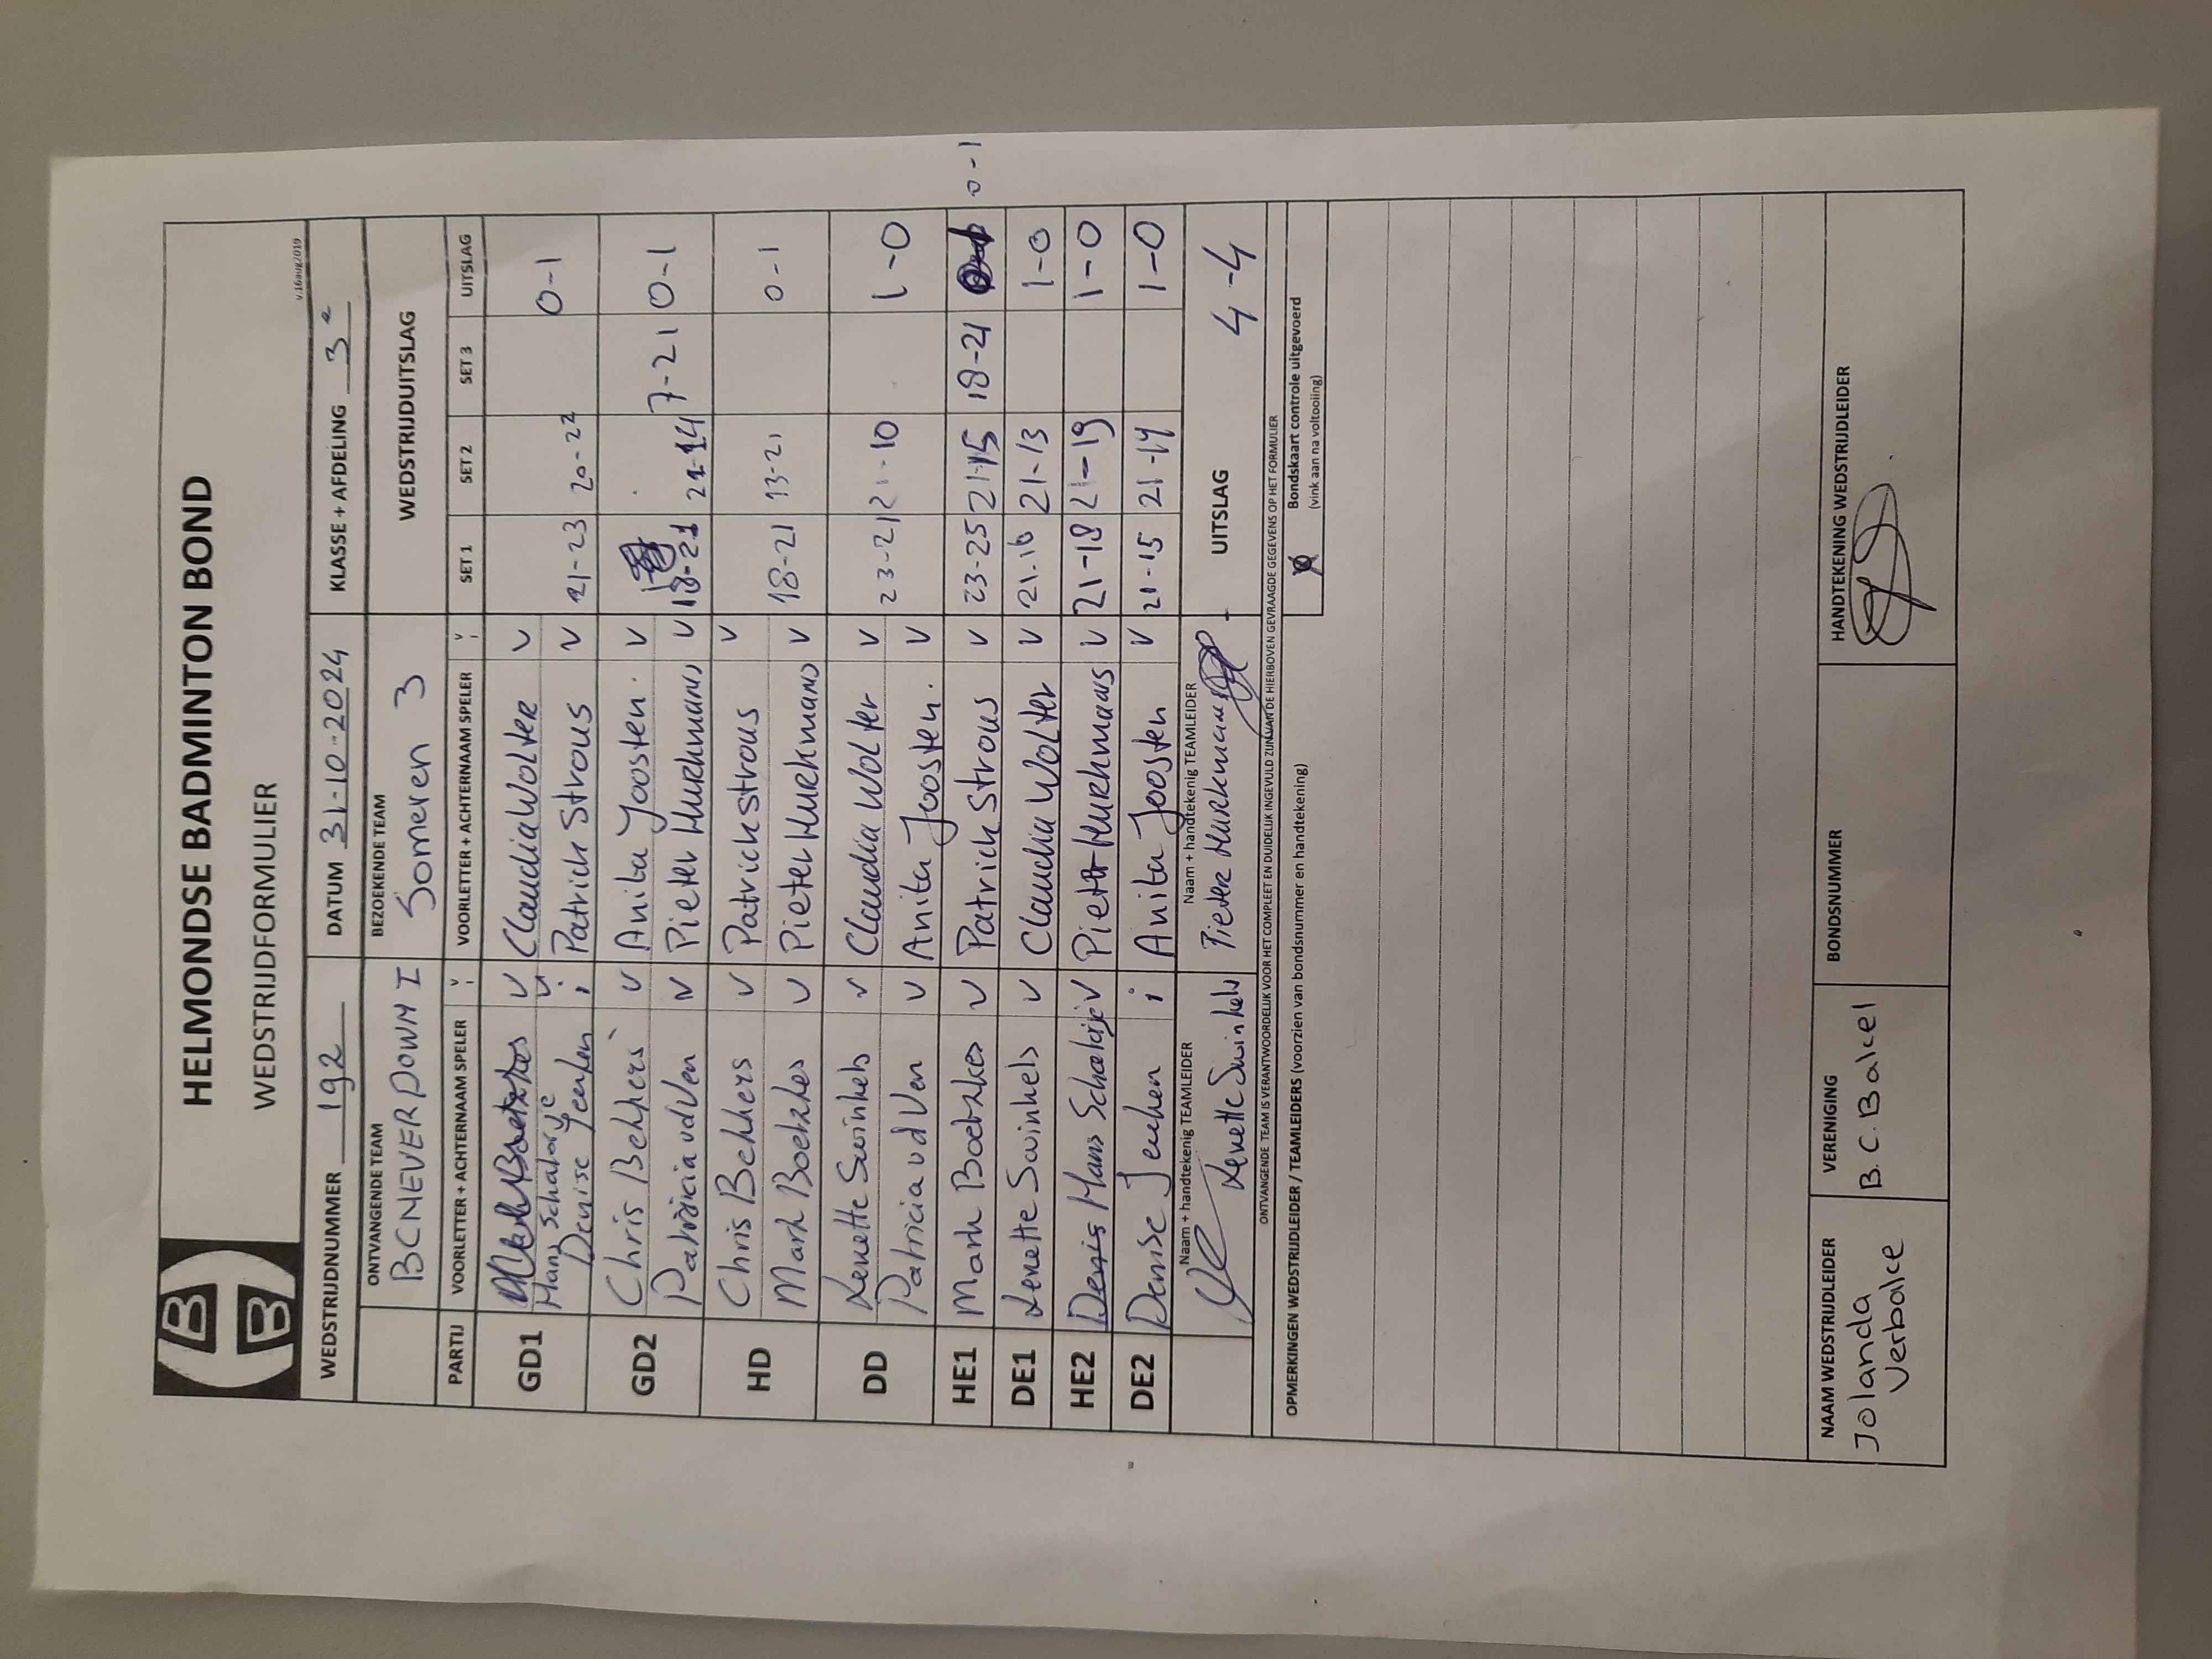 HELMONDSE BADMINTON BOND
WEDSTRIJDFORMULIER
v.16aug2019
WEDSTRIJDNUMMER 192 DATUM 31-10-2024 KLASSE + AFDELING 3e
ONTVANGENDE TEAM BEZOEKENDE TEAM WEDSTRIJDUITSLAG
BC NEVER DOWN I Someren 3
PARTIJ VOORLETTER + ACHTERNAAM SPELER V VOORLETTER + ACHTERNAAM SPELER V SET 1 SET 2 SET 3 UITSLAG
GD1 V Claudia Wolter V
Hans Schalorje V
Denise Jeerken i Patrick Strous V 21-23 20-22 0-1
GD2 Chris Bekkers V Anita Joosten. V
Patricia vd Ven V Pieter Hurkmans V 18-21 21-14 7-21 0-1
HD Chris Bekkers V Patrick Strous V
Mark Boetzkes V Pieter Hurkmans V 18-21 13-21 0-1
DD Lenette Swinkels V Claudia Wolter V
Patricia vd Ven V Anita Joosten. V 23-21 21-10 1-0
HE1 Mark Boetzkes V Patrick Strous V 23-25 21-15 18-21 0-1
DE1 Lenette Swinkels V Claudia Wolter V 21-16 21-13 1-0
HE2 Hans Schalorje V Pieter Hurkmans V 21-18 21-19 1-0
DE2 Denise Jeuken i Anita Joosten V 21-15 21-14 1-0
Naam + handtekenig TEAMLEIDER Naam + handtekenig TEAMLEIDER
Lenette Swinkels Pieter Hurkmans UITSLAG 4-4
ONTVANGENDE TEAM IS VERANTWOORDELIJK VOOR HET COMPLEET EN DUIDELIJK INGEVULD ZIJN VAN DE HIERBOVEN GEVRAAGDE GEGEVENS OP HET FORMULIER
OPMERKINGEN WEDSTRIJDLEIDER / TEAMLEIDERS (voorzien van bondsnummer en handtekening)
Bondskaart controle uitgevoerd
(vink aan na voltooiing)
NAAM WEDSTRIJDLEIDER VERENIGING BONDSNUMMER HANDTEKENING WEDSTRIJDLEIDER
Jolanda B.C. Bakel
Verbakel